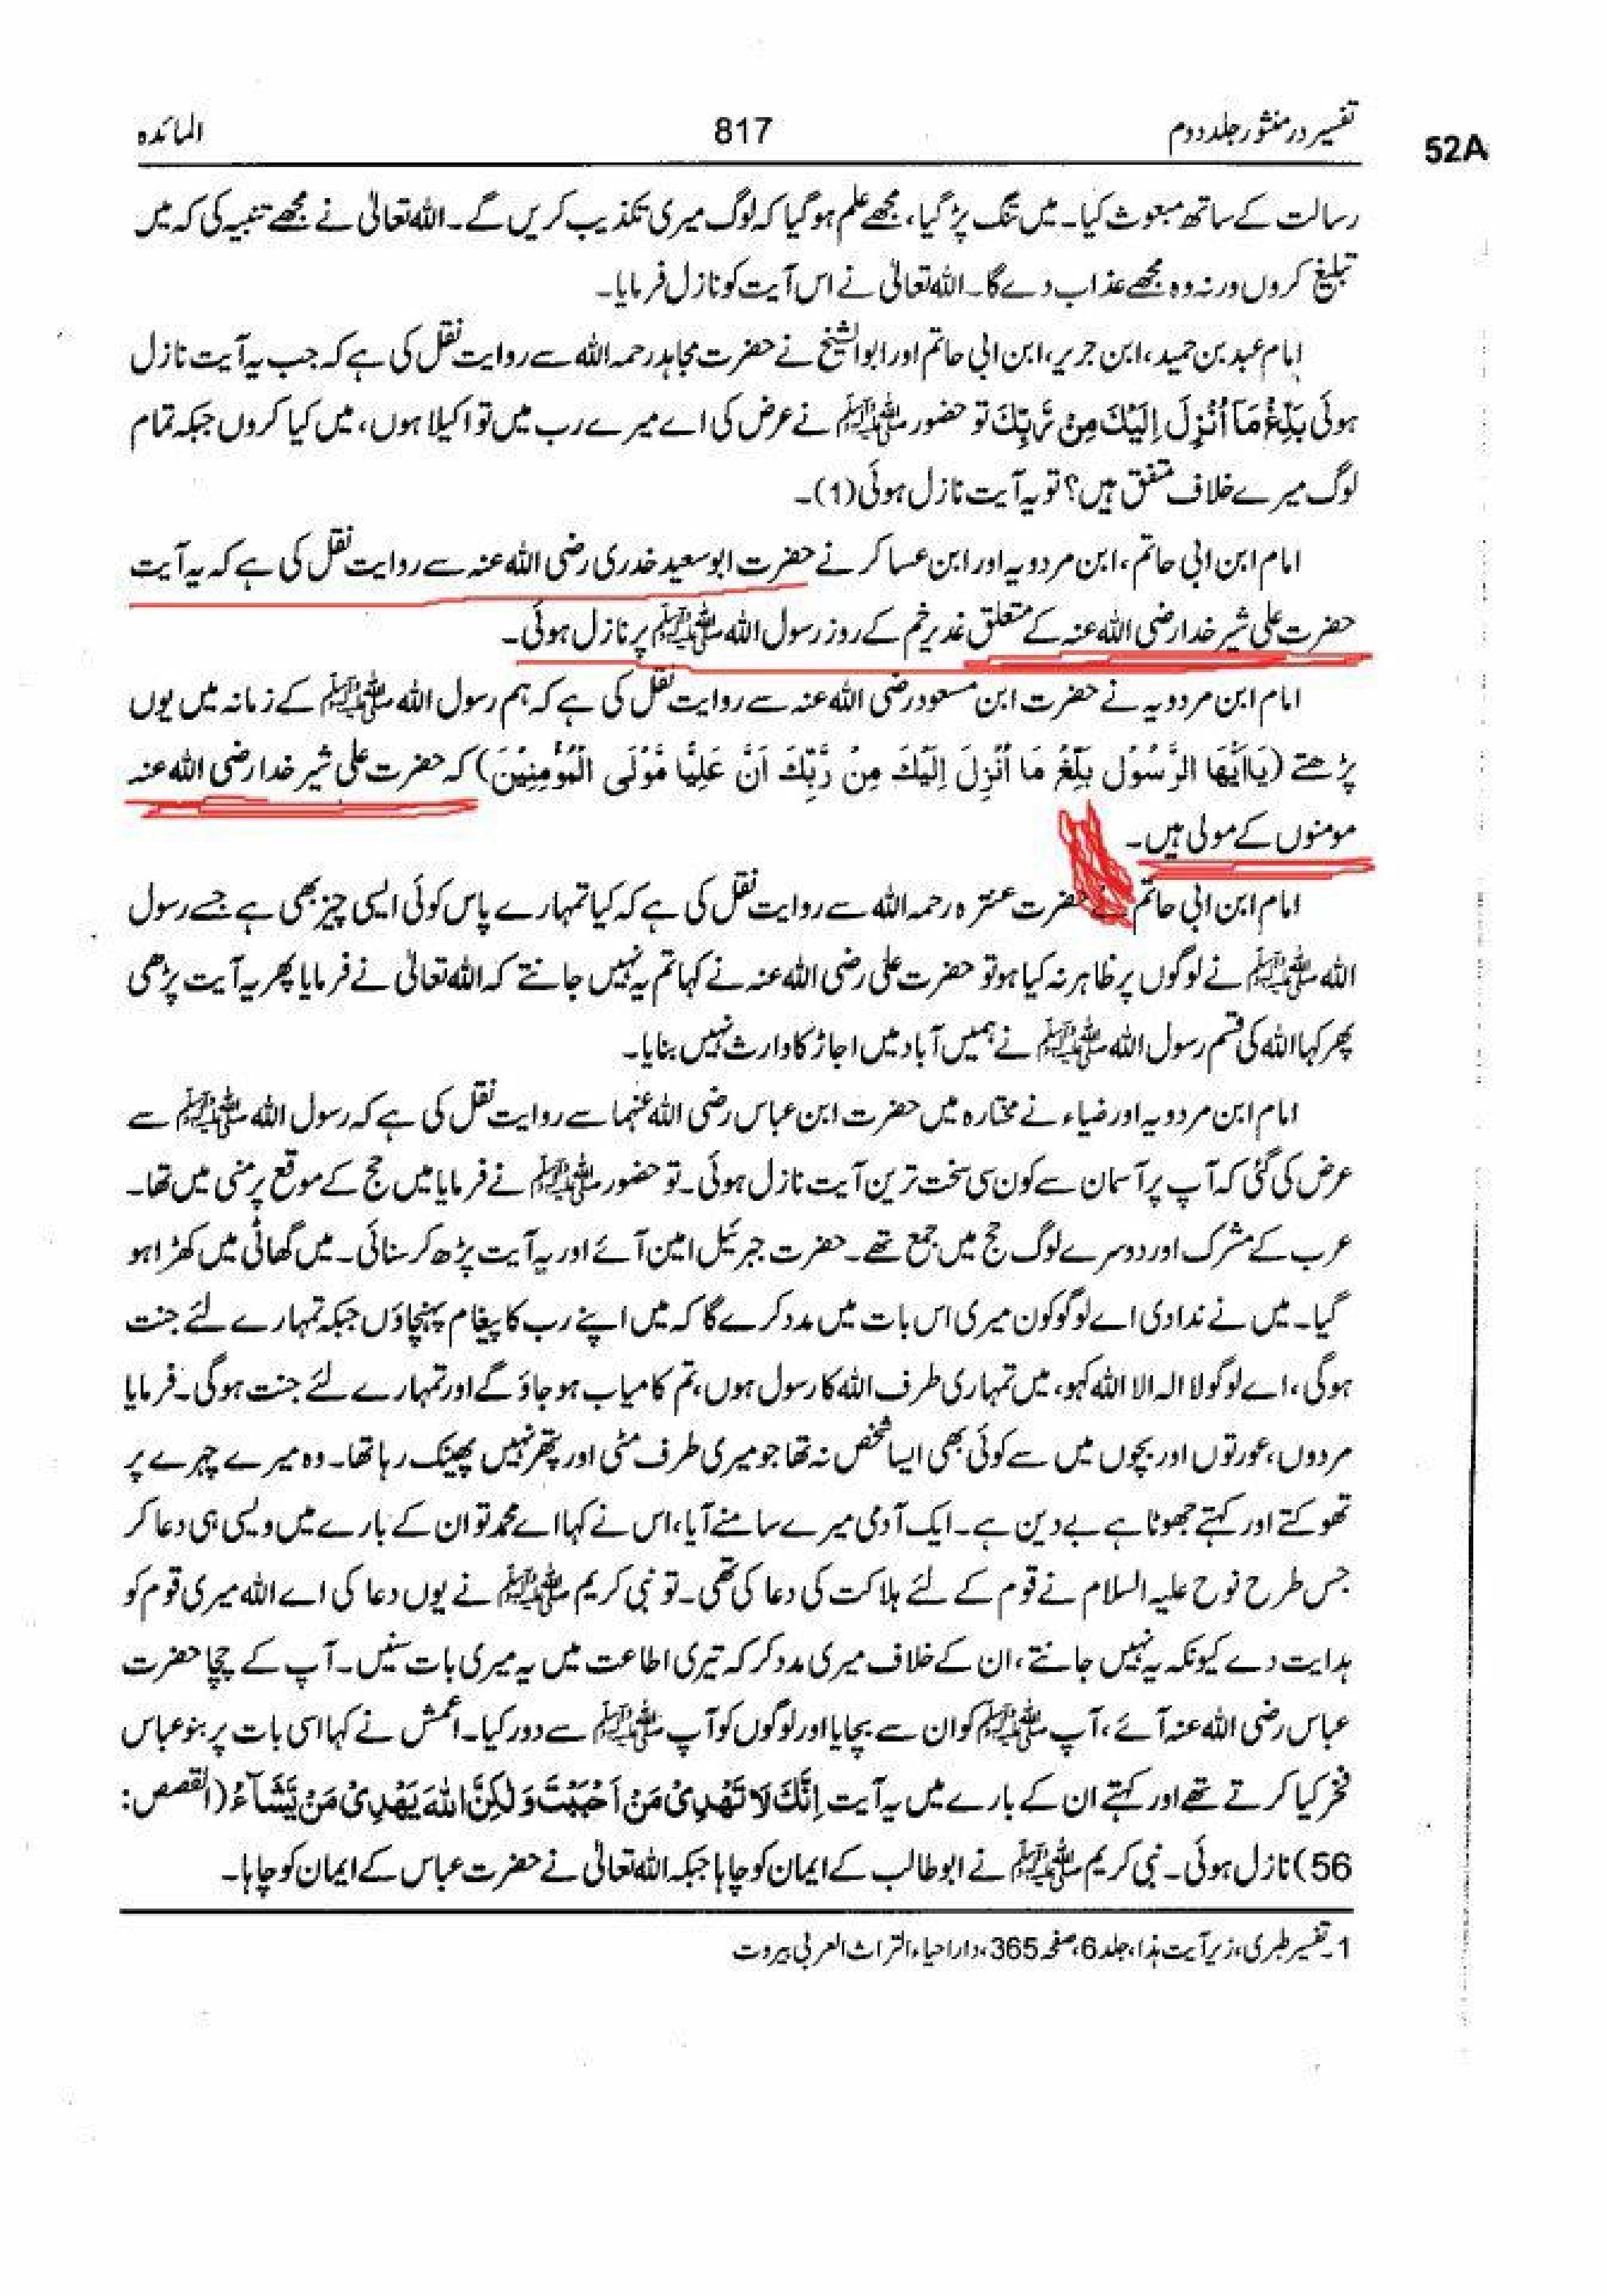 تفسیر در منثور جلد دوم 817 المائدہ
52A
رسالت کے ساتھ مبعوث کیا۔ میں تنگ پڑ گیا، مجھے علم ہو گیا کہ لوگ میری تکذیب کریں گے۔ اللہ تعالیٰ نے مجھے تنبیہ کی کہ میں
تبلیغ کروں ورنہ وہ مجھے عذاب دے گا۔ اللہ تعالیٰ نے اس آیت کو نازل فرمایا۔
امام عبد بن حمید، ابن جریر، ابن ابی حاتم اور ابوالشیخ نے حضرت مجاہد رحمہ اللہ سے روایت نقل کی ہے کہ جب یہ آیت نازل
ہوئی بَلِّغْ مَاۤ اُنْزِلَ اِلَیْكَ مِنْ رَّبِّكَ تو حضور ﷺ نے عرض کی اے میرے رب میں تو اکیلا ہوں، میں کیا کروں جبکہ تمام
لوگ میرے خلاف متفق ہیں؟ تو یہ آیت نازل ہوئی (1)۔
امام ابن ابی حاتم، ابن مردویہ اور ابن عساکر نے حضرت ابوسعید خدری رضی اللہ عنہ سے روایت نقل کی ہے کہ یہ آیت
حضرت علی شیر خدا رضی اللہ عنہ کے متعلق غدیر خم کے روز رسول اللہ ﷺ پر نازل ہوئی۔
امام ابن مردویہ نے حضرت ابن مسعود رضی اللہ عنہ سے روایت نقل کی ہے کہ ہم رسول اللہ ﷺ کے زمانہ میں یوں
پڑھتے (یَااَیُّهَا الرَّسُوْلُ بَلِّغْ مَا اُنْزِلَ اِلَیْكَ مِنْ رَّبِّكَ اَنَّ عَلِیًّا مَّوْلَی الْمُؤْمِنِیْنَ) کہ حضرت علی شیر خدا رضی اللہ عنہ
مومنوں کے مولی ہیں۔
امام ابن ابی حاتم نے حضرت عنترہ رحمہ اللہ سے روایت نقل کی ہے کہ کیا تمہارے پاس کوئی ایسی چیز بھی ہے جسے رسول
اللہ ﷺ نے لوگوں پر ظاہر نہ کیا ہو تو حضرت علی رضی اللہ عنہ نے کہا تم یہ نہیں جانتے کہ اللہ تعالیٰ نے فرمایا پھر یہ آیت پڑھی
پھر کہا اللہ کی قسم رسول اللہ ﷺ نے ہمیں آباد میں اجاڑ کا وارث نہیں بنایا۔
امام ابن مردویہ اور ضیاء نے مختارہ میں حضرت ابن عباس رضی اللہ عنہما سے روایت نقل کی ہے کہ رسول اللہ ﷺ سے
عرض کی گئی کہ آپ پر آسمان سے کون سی سخت ترین آیت نازل ہوئی۔ تو حضور ﷺ نے فرمایا میں حج کے موقع پر منی میں تھا۔
عرب کے مشرک اور دوسرے لوگ حج میں جمع تھے۔ حضرت جبرئیل امین آئے اور یہ آیت پڑھ کر سنائی۔ میں گھاٹی میں کھڑا ہو
گیا۔ میں نے ندا دی اے لوگو کون میری اس بات میں مدد کرے گا کہ میں اپنے رب کا پیغام پہنچاؤں جبکہ تمہارے لئے جنت
ہوگی، اے لوگو لا الہ الا اللہ کہو، میں تمہاری طرف اللہ کا رسول ہوں، تم کامیاب ہو جاؤ گے اور تمہارے لئے جنت ہوگی۔ فرمایا
مردوں، عورتوں اور بچوں میں سے کوئی بھی ایسا شخص نہ تھا جو میری طرف مٹی اور پتھر نہیں پھینک رہا تھا۔ وہ میرے چہرے پر
تھوکتے اور کہتے جھوٹا ہے بے دین ہے۔ ایک آدمی میرے سامنے آیا، اس نے کہا اے محمد تو ان کے بارے میں ویسی ہی دعا کر
جس طرح نوح علیہ السلام نے قوم کے لئے ہلاکت کی دعا کی تھی۔ تو نبی کریم ﷺ نے یوں دعا کی اے اللہ میری قوم کو
ہدایت دے کیونکہ یہ نہیں جانتے، ان کے خلاف میری مدد کر کہ تیری اطاعت میں یہ میری بات سنیں۔ آپ کے چچا حضرت
عباس رضی اللہ عنہ آئے، آپ ﷺ کو ان سے بچایا اور لوگوں کو آپ ﷺ سے دور کیا۔ اعمش نے کہا اسی بات پر بنو عباس
فخر کیا کرتے تھے اور کہتے ان کے بارے میں یہ آیت اِنَّكَ لَا تَهْدِیْ مَنْ اَحْبَبْتَ وَ لٰكِنَّ اللّٰهَ یَهْدِیْ مَنْ یَّشَآءُ (القصص:
56) نازل ہوئی۔ نبی کریم ﷺ نے ابوطالب کے ایمان کو چاہا جبکہ اللہ تعالیٰ نے حضرت عباس کے ایمان کو چاہا۔
1۔ تفسیر طبری، زیر آیت ہذا، جلد 6، صفحہ 365، دار احیاء التراث العربی بیروت